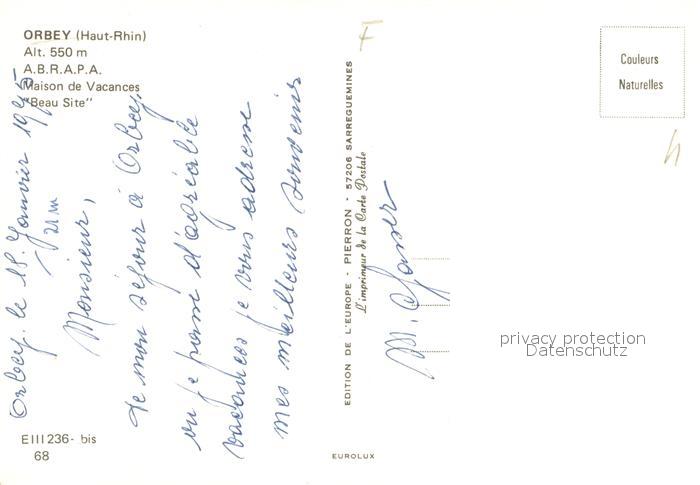 ORBEY (Haut-Rhin)
Alt. 550 m
A.B.R.A.P.A.
Maison de Vacances
"Beau Site"
Orbey le 18. Janvier 1975
Monsieur,
De mon séjour à Orbey,
où je passe d'agréable
vacances je vous adresse
mes meilleurs souvenir
EIII 236- bis
68
EDITION DE L'EUROPE - PIERRON - 57206 SARREGUEMINES
L'imprimeur de la Carte Postale
EUROLUX
F
Couleurs
Naturelles
h
M.
privacy protection
Datenschutz